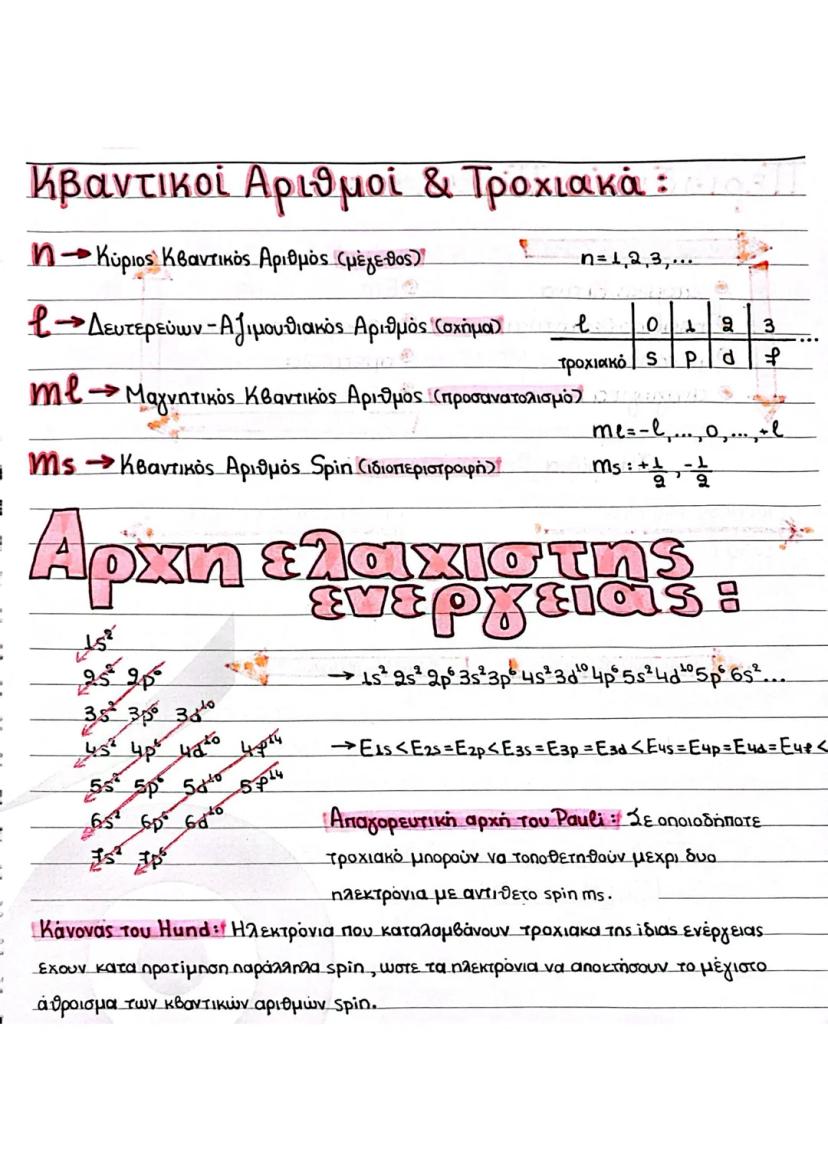 Κβαντικοί Αριθμοί & Τροχιακά:
n → Κύριος Κβαντικός Αριθμός (μέγεθος) n=1,2,3,...
ℓ → Δευτερεύων-Αζιμουθιακός Αριθμός (σχήμα) ℓ | 0 | 1 | 2 | 3 ...
τροχιακό | s | p | d | f
mℓ → Μαγνητικός Κβαντικός Αριθμός (προσανατολισμό)
mℓ=-ℓ,...,0,...,+ℓ
ms → Κβαντικός Αριθμός Spin (ιδιοπεριστροφή) ms:+1/2,-1/2
Αρχη ελαχιστης
ενεργειας:
1s²
2s² 2p⁶ → 1s² 2s² 2p⁶ 3s² 3p⁶ 4s² 3d¹⁰ 4p⁶ 5s² 4d¹⁰ 5p⁶ 6s²...
3s² 3p⁶ 3d¹⁰
4s² 4p⁶ 4d¹⁰ 4f¹⁴ → E1s<E2s=E2p<E3s=E3p=E3d<E4s=E4p=E4d=E4f<
5s² 5p⁶ 5d¹⁰ 5f¹⁴
6s² 6p⁶ 6d¹⁰ Απαγορευτική αρχή του Pauli: Σε οποιοδήποτε
7s² 7p⁶ τροχιακό μπορούν να τοποθετηθούν μεχρι δυο
ηλεκτρόνια με αντιθετο spin ms.
Κάνονας του Hund: Ηλεκτρόνια που καταλαμβάνουν τροχιακα της ίδιας ενέργειας
εχουν κατα προτίμηση παράλληλα spin, ωστε τα ηλεκτρόνια να αποκτήσουν το μέγιστο
άθροισμα των κβαντικών αριθμών spin.